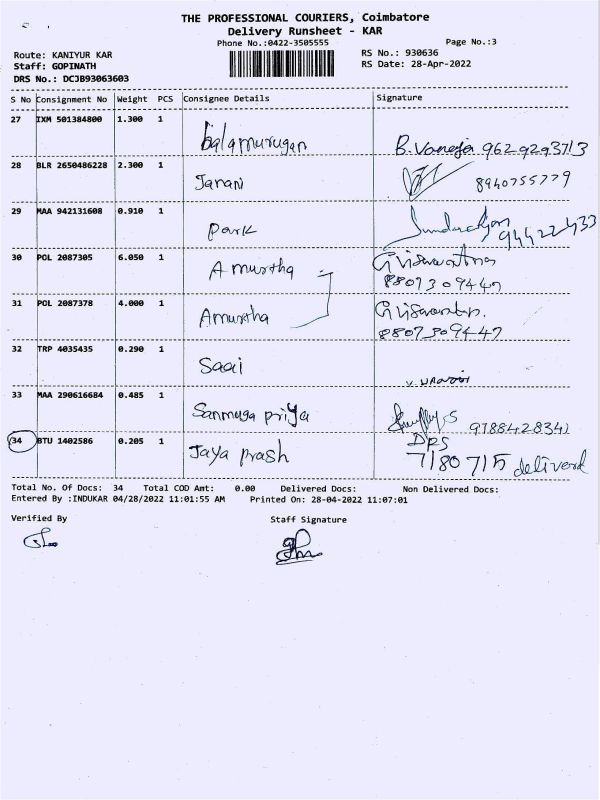 THE PROFESSIONAL COURIERS, Coimbatore
Delivery Runsheet - KAR
Phone No.:0422-3505555
Page No.:3
Route: KANIYUR KAR
RS No.: 930636
Staff: GOPINATH
RS Date: 28-Apr-2022
DRS No.: DCJB93063603
S No Consignment No Weight PCS Consignee Details Signature
27 IXM 501384800 1.300 1 balamurugan B. Vaneja 9629293713
28 BLR 2650486228 2.300 1 Janani 8940755779
29 MAA 942131608 0.910 1 park
30 POL 2087305 6.050 1 Amurtha
8807309447
31 POL 2087378 4.000 1 Amurtha
8807309447
32 TRP 4035435 0.290 1 Saai
33 MAA 290616684 0.485 1 Sanmuga priya 9788428342
34 BTU 1402586 0.205 1 Jaya prash DPS
7180715 deliverd
Total No. Of Docs: 34 Total COD Amt: 0.00 Delivered Docs: Non Delivered Docs:
Entered By :INDUKAR 04/28/2022 11:01:55 AM Printed On: 28-04-2022 11:07:01
Verified By Staff Signature